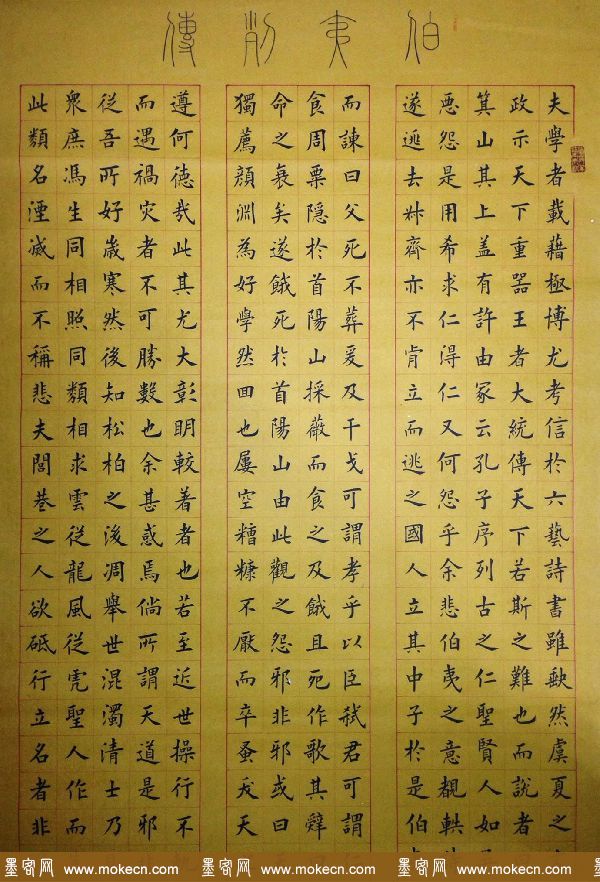 伯夷列傳
夫學者載藉極博尤考信於六藝詩書雖缺然虞夏之
政示天下重器王者大統傳天下若斯之難也而說者
箕山其上盖有許由冢云孔子序列古之仁聖賢人如
惡怨是用希求仁得仁又何怨乎余悲伯夷之意覩軼
遂逃去叔齊亦不肯立而逃之國人立其中子於是伯
而諫曰父死不葬爰及干戈可謂孝乎以臣弒君可謂
食周粟隱於首陽山採薇而食之及餓且死作歌其辭
命之衰矣遂餓死於首陽山由此觀之怨邪非邪或曰
獨薦顏淵為好學然回也屢空糟糠不厭而卒蚤夭天
遵何德哉此其尤大彰明較著者也若至近世操行不
而遇禍灾者不可勝數也余甚惑焉倘所謂天道是邪
從吾所好歲寒然後知松柏之後凋舉世混濁清士乃
衆庶馮生同相照同類相求雲從龍風從虎聖人作而
此類名湮滅而不稱悲夫閭巷之人欲砥行立名者非
墨客网 www.mokecn.com 墨客网 www.mokecn.com 墨客网 www.mokecn.com